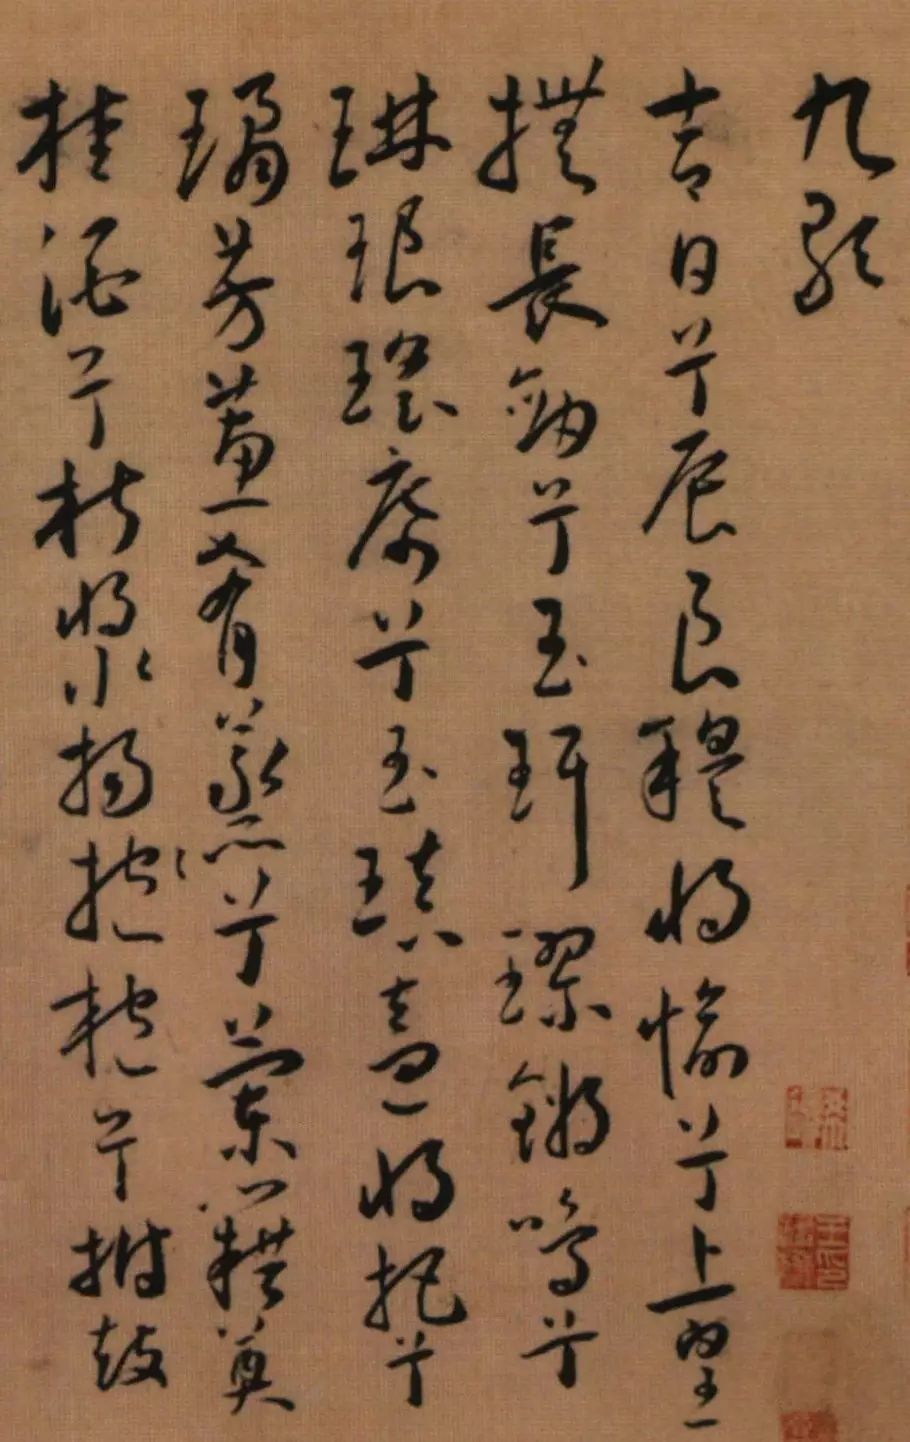 九歌
吉日兮辰良穆將愉兮上皇
撫長劍兮玉珥璆鏘鳴兮
琳琅瑤席兮玉瑱盍將把兮
瓊芳蕙肴蒸兮蘭藉奠
桂酒兮椒漿揚抱枹兮拊鼓